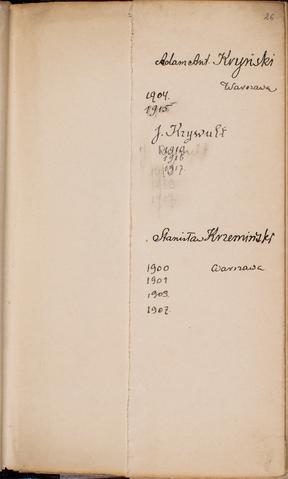 26
Adam Ant Kryński
Warszawa
1904.
1915.
J. Krzywult
1916
1917.
Stanisław Krzemiński
1900 Warszawa
1901
1903.
1907.